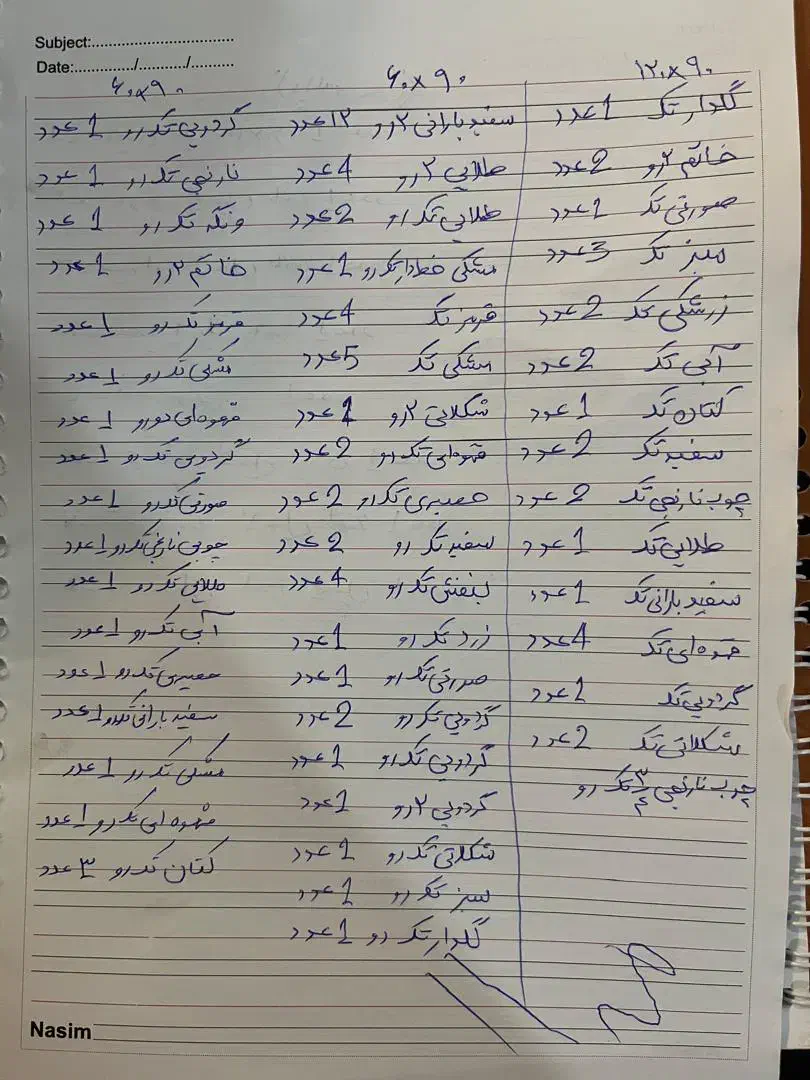 Subject:
Date:............/.........../..........
۱۲۰×۹۰
گلدار تک 1 عدد
خاتم ۲رو 2 عدد
صورتی تک 1 عدد
سبز تک 3 عدد
زرشکی تک 2 عدد
آبی تک 2 عدد
کتان تک 1 عدد
سفید تک 2 عدد
چوب نارنجی تک 2 عدد
طلایی تک 1 عدد
سفید بارانی تک 1 عدد
قهوه ای تک 4 عدد
گردویی تک 1 عدد
شکلاتی تک 2 عدد
چوب نارنجی ۳/۴ تک رو
۶۰×۹۰
سفید بارانی ۲رو ۱۲ عدد
طلایی ۲رو 4 عدد
طلایی تک رو 2 عدد
مشکی خط دار تک رو 1 عدد
قرمز تک 4 عدد
مشکی تک 5 عدد
شکلاتی ۲رو 1 عدد
قهوه ای تک رو 2 عدد
حصیری تک رو 2 عدد
سفید تک رو 2 عدد
بنفش تک رو 4 عدد
زرد تک رو 1 عدد
صورتی تک رو 1 عدد
گردویی تک رو 2 عدد
گردویی تک رو 1 عدد
گردویی ۲رو 1 عدد
شکلاتی تک رو 1 عدد
سبز تک رو 1 عدد
گلدار تک رو 1 عدد
۶۰×۹۰
گردویی تک رو 1 عدد
نارنجی تک رو 1 عدد
ونگه تک رو 1 عدد
خاتم ۲رو 1 عدد
قرمز تک رو 1 عدد
مشکی تک رو 1 عدد
قهوه ای دو رو 1 عدد
گردویی تک رو 1 عدد
صورتی تک رو 1 عدد
چوبی نارنجی تک رو 1 عدد
طلایی تک رو 1 عدد
آبی تک رو 1 عدد
حصیری تک رو 1 عدد
سفید بارانی تک رو 1 عدد
مشکی تک رو 1 عدد
قهوه ای تک رو 1 عدد
کتان تک رو ۳ عدد
Nasim